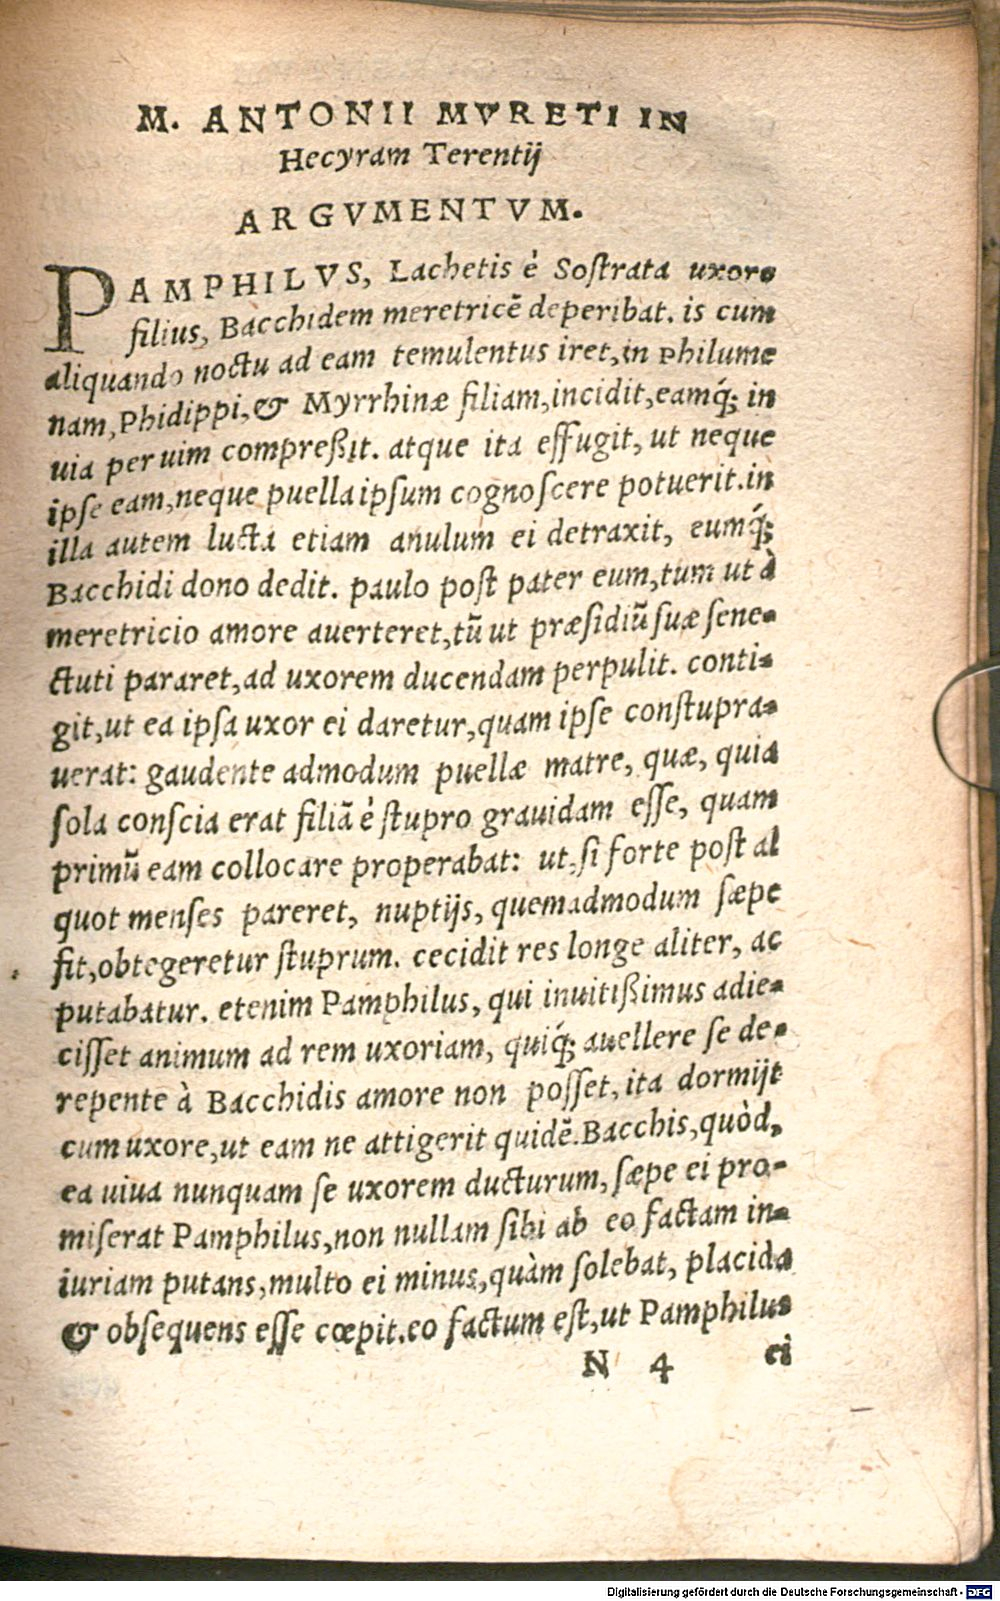 M. ANTONII MVRETI IN
Hecyram Terentij
ARGVMENTVM.
PAMPHILVS, Lachetis è Sostrata uxore
filius, Bacchidem meretricē deperibat. is cum
aliquando noctu ad eam temulentus iret, in Philume
nam, Phidippi, & Myrrhinæ filiam, incidit, eamq́; in
uia per uim compreßit. atque ita effugit, ut neque
ipse eam, neque puella ipsum cognoscere potuerit. in
illa autem lucta etiam anulum ei detraxit, eumq́;
Bacchidi dono dedit. paulo post pater eum, tum ut à
meretricio amore auerteret, tū ut præsidiū suæ sene-
ctuti pararet, ad uxorem ducendam perpulit. conti-
git, ut ea ipsa uxor ei daretur, quam ipse constupra-
uerat: gaudente admodum puellæ matre, quæ, quia
sola conscia erat filiā è stupro grauidam esse, quam
primū eam collocare properabat: ut, si forte post al
quot menses pareret, nuptijs, quemadmodum sæpe
fit, obtegeretur stuprum. cecidit res longe aliter, ac
putabatur. etenim Pamphilus, qui inuitißimus adie-
cisset animum ad rem uxoriam, quiq́; auellere se de-
repente à Bacchidis amore non posset, ita dormijt
cum uxore, ut eam ne attigerit quidē. Bacchis, quòd,
ea uiua nunquam se uxorem ducturum, sæpe ei pro-
miserat Pamphilus, non nullam sibi ab eo factam in-
iuriam putans, multo ei minus, quàm solebat, placida
& obsequens esse cœpit. eo factum est, ut Pamphilus
N 4 ei
Digitalisierung gefördert durch die Deutsche Forschungsgemeinschaft - DFG